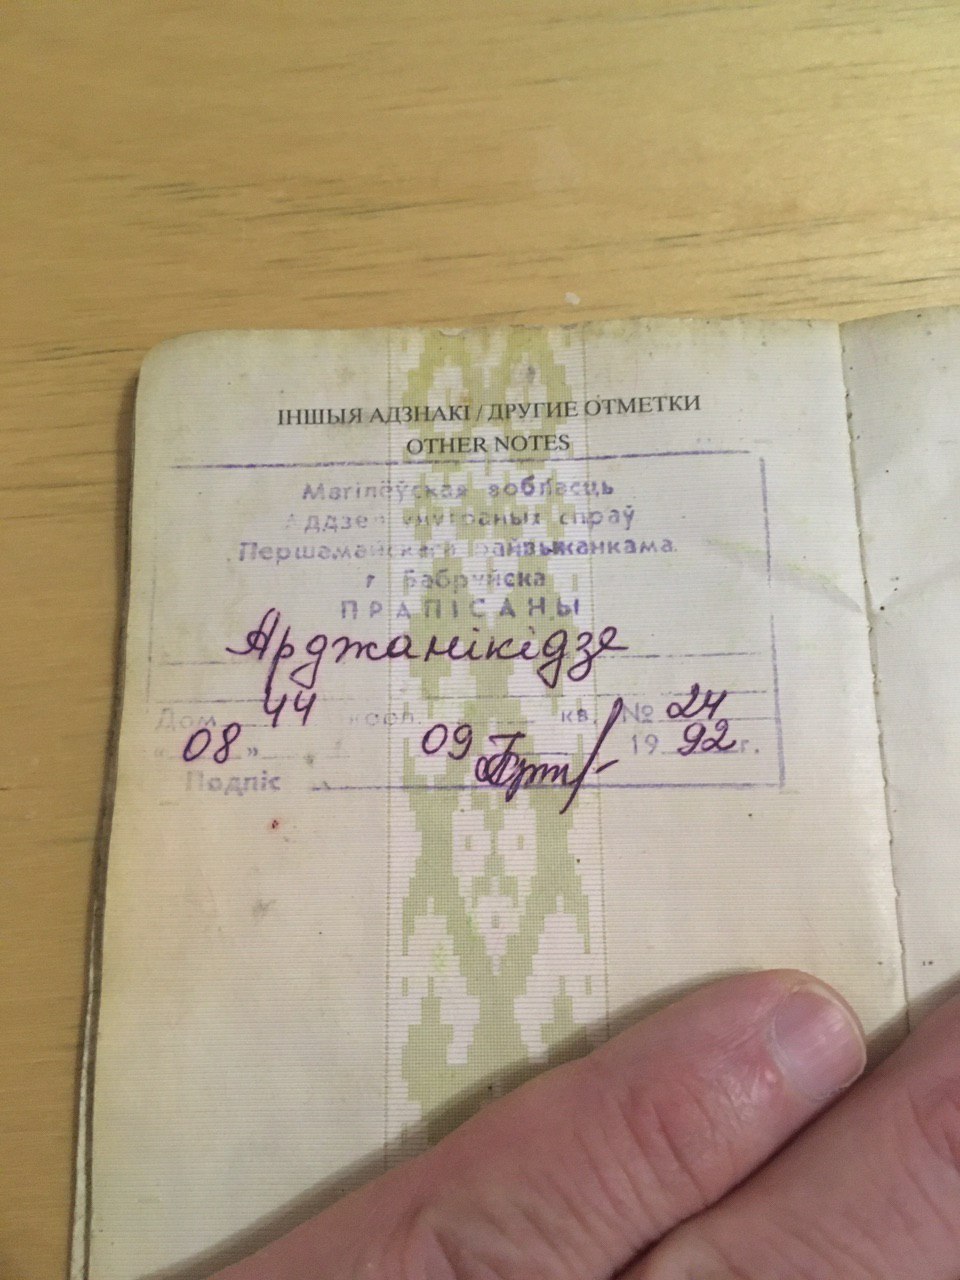 ІНШЫЯ АДЗНАКІ / ДРУГИЕ ОТМЕТКИ
OTHER NOTES
Магілёўская вобласць
Аддзел унутраных спраў
Першамайскага райвыканкама
г Бабруйска
ПРАПІСАНЫ
Арджанікідзе
Дом 44 корп. кв. № 24
"08" 09 1992 г.
Подпіс